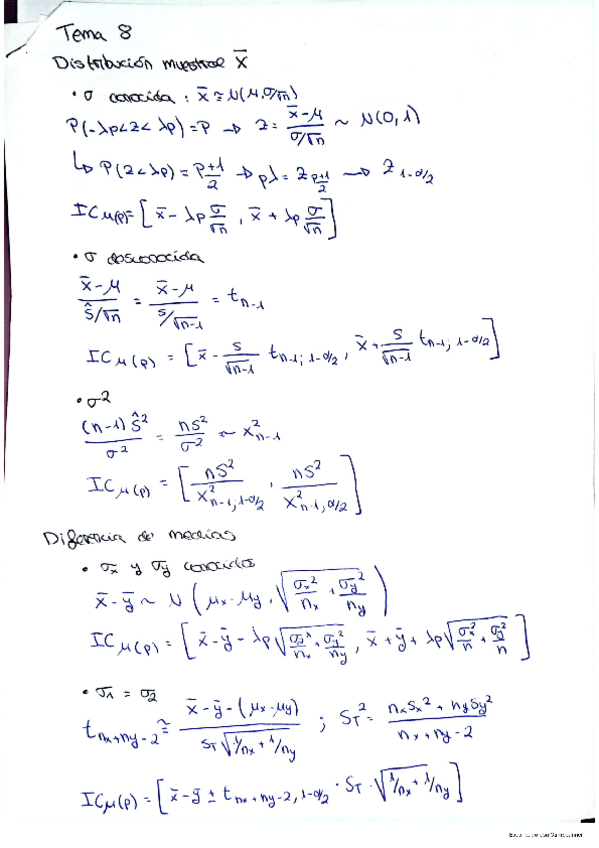 Tema 8
Distribución muestral x̄
• σ conocida : x̄ ≈ N(μ, σ/√n)
P(-λp<z<λp)=P → z = (x̄-μ)/(σ/√n) ~ N(0,1)
↳ P(z<λp) = (P+1)/2 → pλ = z_(p+1)/2 → z_1-α/2
IC_μ(p) = [x̄ - λp σ/√n , x̄ + λp σ/√n]
• σ desconocida
(x̄-μ)/(ŝ/√n) = (x̄-μ)/(s/√n-1) = t_n-1
IC_μ(p) = [x̄ - s/√n-1 t_n-1; 1-α/2 , x̄ + s/√n-1 t_n-1; 1-α/2]
• σ²
(n-1)Ŝ²/σ² = nS²/σ² ~ X²_n-1
IC_μ(p) = [nS²/X²_n-1, 1-α/2 , nS²/X²_n-1, α/2]
Diferencia de medias
• σx y σy conocidas
x̄-ȳ ~ N(μx-μy, √(σx²/nx + σy²/ny))
IC_μ(p) = [x̄-ȳ - λp√(σx²/nx + σy²/ny) , x̄+ȳ + λp√(σx²/n + σy²/n)]
• σ1 = σ2
t_nx+ny-2 ≅ (x̄-ȳ-(μx-μy))/(S_T√(1/nx+1/ny)) ; S_T² = (nxSx² + nySy²)/(nx+ny-2)
IC_μ(p) = [x̄-ȳ ± t_nx+ny-2, 1-α/2 · S_T · √(1/nx+1/ny)]